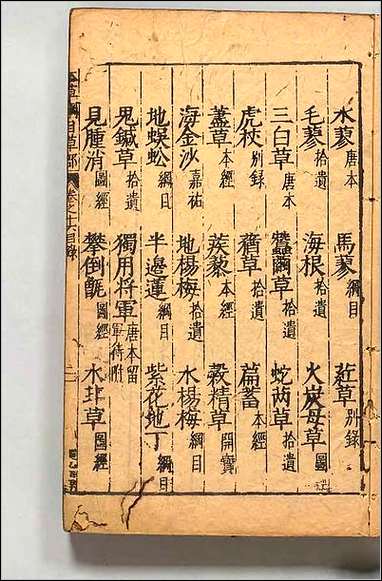 水蓼唐本　馬蓼綱目　葒草别錄
毛蓼拾遺　海根拾遺　火炭母草圖
三白草唐本　蠶繭草拾遺　蛇䒎草拾遺
虎杖别錄　蕕草拾遺　萹蓄本經
藎草本經　蒺藜本經　穀精草開寶
海金沙嘉祐　地楊梅拾遺　水楊梅綱目
地蜈蚣綱目　半邊蓮綱目　紫花地丁綱目
鬼鍼草拾遺　獨用将軍唐本留軍待附
見腫消圖經　攀倒甑圖經　水甘草圖經
草綱目草部　卷之十六目錄　二